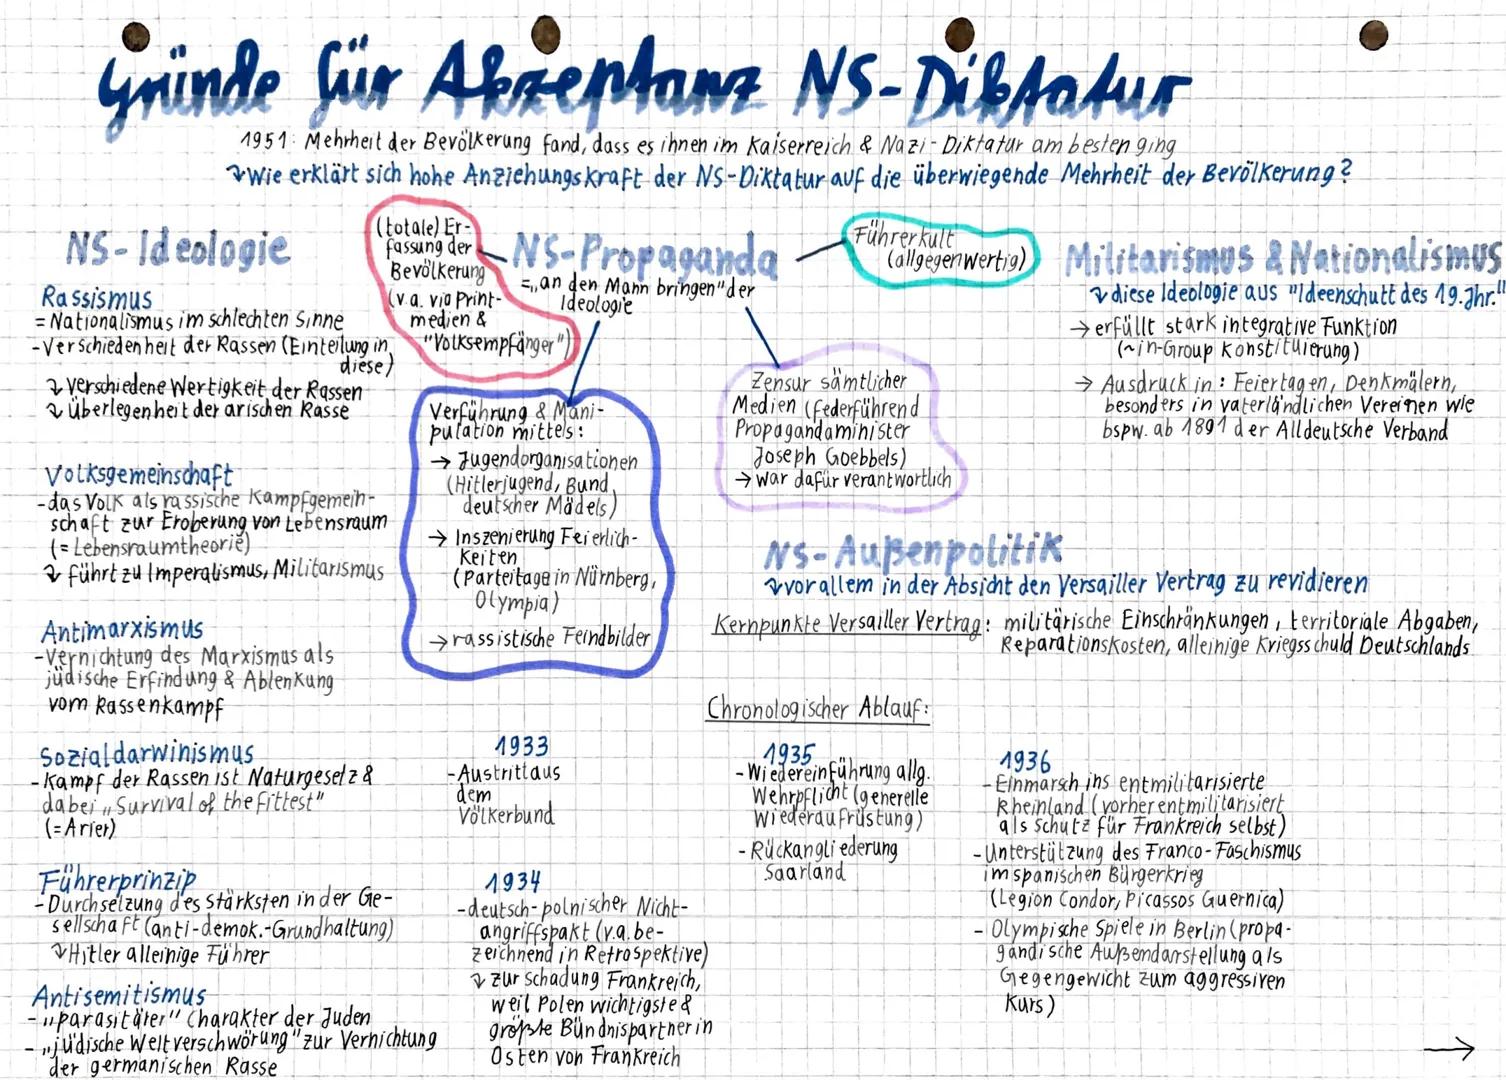 Gründe für Akzeptanz NS-Diktatur
1951: Mehrheit der Bevölkerung fand, dass es ihnen im Kaiserreich & Nazi-Diktatur am besten ging
↴ Wie erklärt sich hohe Anziehungskraft der NS-Diktatur auf die überwiegende Mehrheit der Bevölkerung?
NS-Ideologie
Rassismus
= Nationalismus im schlechten Sinne
- Verschiedenheit der Rassen (Einteilung in
diese)
↴ verschiedene Wertigkeit der Rassen
↴ Überlegenheit der arischen Rasse
Volksgemeinschaft
- das Volk als rassische Kampfgemein-
schaft zur Eroberung von Lebensraum
(= Lebensraumtheorie)
↴ führt zu Imperalismus, Militarismus
Antimarxismus
- Vernichtung des Marxismus als
jüdische Erfindung & Ablenkung
vom Rassenkampf
Sozialdarwinismus
- Kampf der Rassen ist Naturgesetz &
dabei „Survival of the fittest"
(= Arier)
Führerprinzip
- Durchsetzung des Stärksten in der Ge-
sellschaft (anti-demok.-Grundhaltung)
↴ Hitler alleinige Führer
Antisemitismus
- „parasitärer" Charakter der Juden
- „jüdische Weltverschwörung" zur Vernichtung
der germanischen Rasse
(totale) Er-
fassung der
Bevölkerung
(v.a. via Print-
medien &
"Volksempfänger")
NS-Propaganda
= „an den Mann bringen" der
Ideologie
Führerkult
(allgegenwertig)
Verführung & Mani-
pulation mittels:
→ Jugendorganisationen
(Hitlerjugend, Bund
deutscher Mädels)
→ Inszenierung Feierlich-
keiten
(Parteitage in Nürnberg,
Olympia)
→ rassistische Feindbilder
Zensur sämtlicher
Medien (federführend
Propagandaminister
Joseph Goebbels)
→ war dafür verantwortlich
Militarismus & Nationalismus
↴ diese Ideologie aus "Ideenschutt des 19. Jhr."
→ erfüllt stark integrative Funktion
(~in-Group Konstituierung)
→ Ausdruck in: Feiertagen, Denkmälern,
besonders in vaterländlichen Vereinen wie
bspw. ab 1891 der Alldeutsche Verband
NS-Außenpolitik
↴ vor allem in der Absicht den Versailler Vertrag zu revidieren
Kernpunkte Versailler Vertrag: militärische Einschränkungen, territoriale Abgaben,
Reparationskosten, alleinige Kriegsschuld Deutschlands
Chronologischer Ablauf:
1933
- Austritt aus
dem
Völkerbund
1934
- deutsch-polnischer Nicht-
angriffspakt (v.a. be-
zeichnend in Retrospektive)
↴ zur Schadung Frankreich,
weil Polen wichtigste &
größte Bündnispartner in
Osten von Frankreich
1935
- Wiedereinführung allg.
Wehrpflicht (generelle
Wiederaufrüstung)
- Rückangliederung
Saarland
1936
- Einmarsch ins entmilitarisierte
Rheinland (vorher entmilitarisiert
als Schutz für Frankreich selbst)
- Unterstützung des Franco-Faschismus
im spanischen Bürgerkrieg
(Legion Condor, Picassos Guernica)
- Olympische Spiele in Berlin (propa-
gandische Außendarstellung als
Gegengewicht zum aggressiven
Kurs)
→